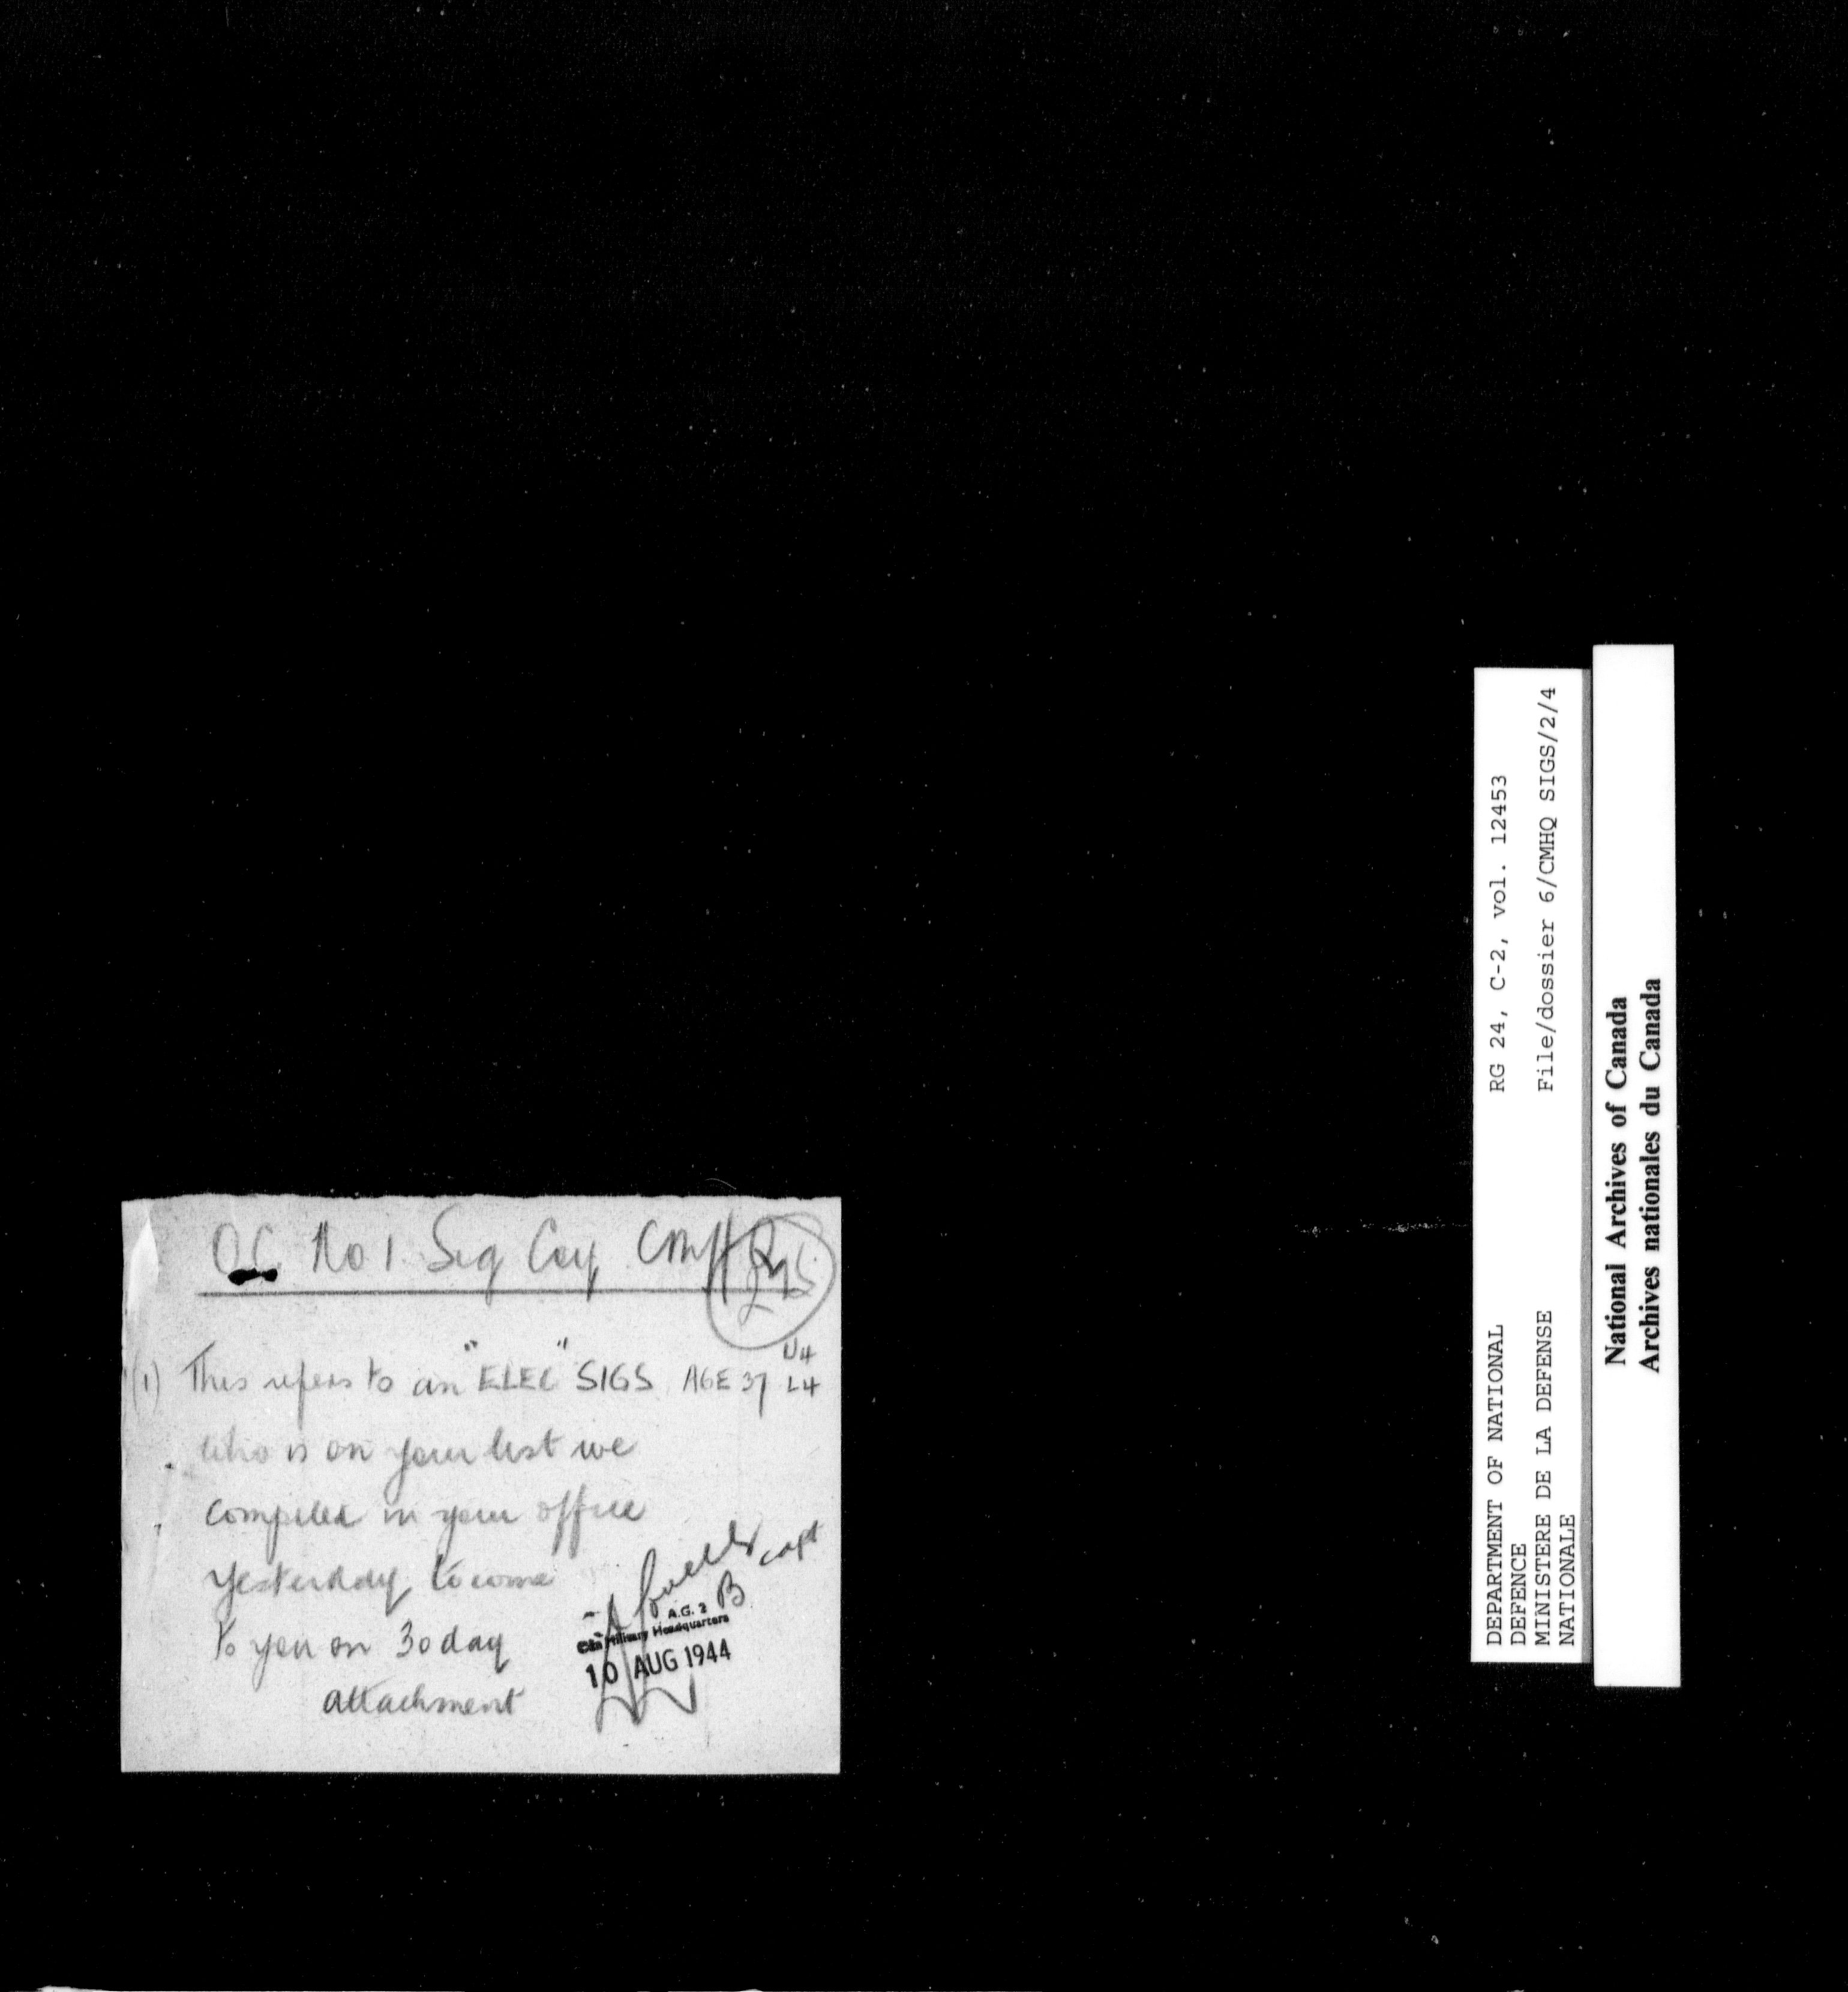 O.C. No 1. Sig Coy CMHQ
U4
(1) This refers to an "ELEC" SIGS AGE 37 L4
who is on your list we
compiled in your office
yesterday to come
to you on 30 day
attachment
Capt
A.G. 2 B
Cdn Military Headquarters
10 AUG 1944
DEPARTMENT OF NATIONAL
DEFENCE
MINISTERE DE LA DEFENSE
NATIONALE
RG 24, C-2, vol. 12453
File/dossier 6/CMHQ SIGS/2/4
National Archives of Canada
Archives nationales du Canada